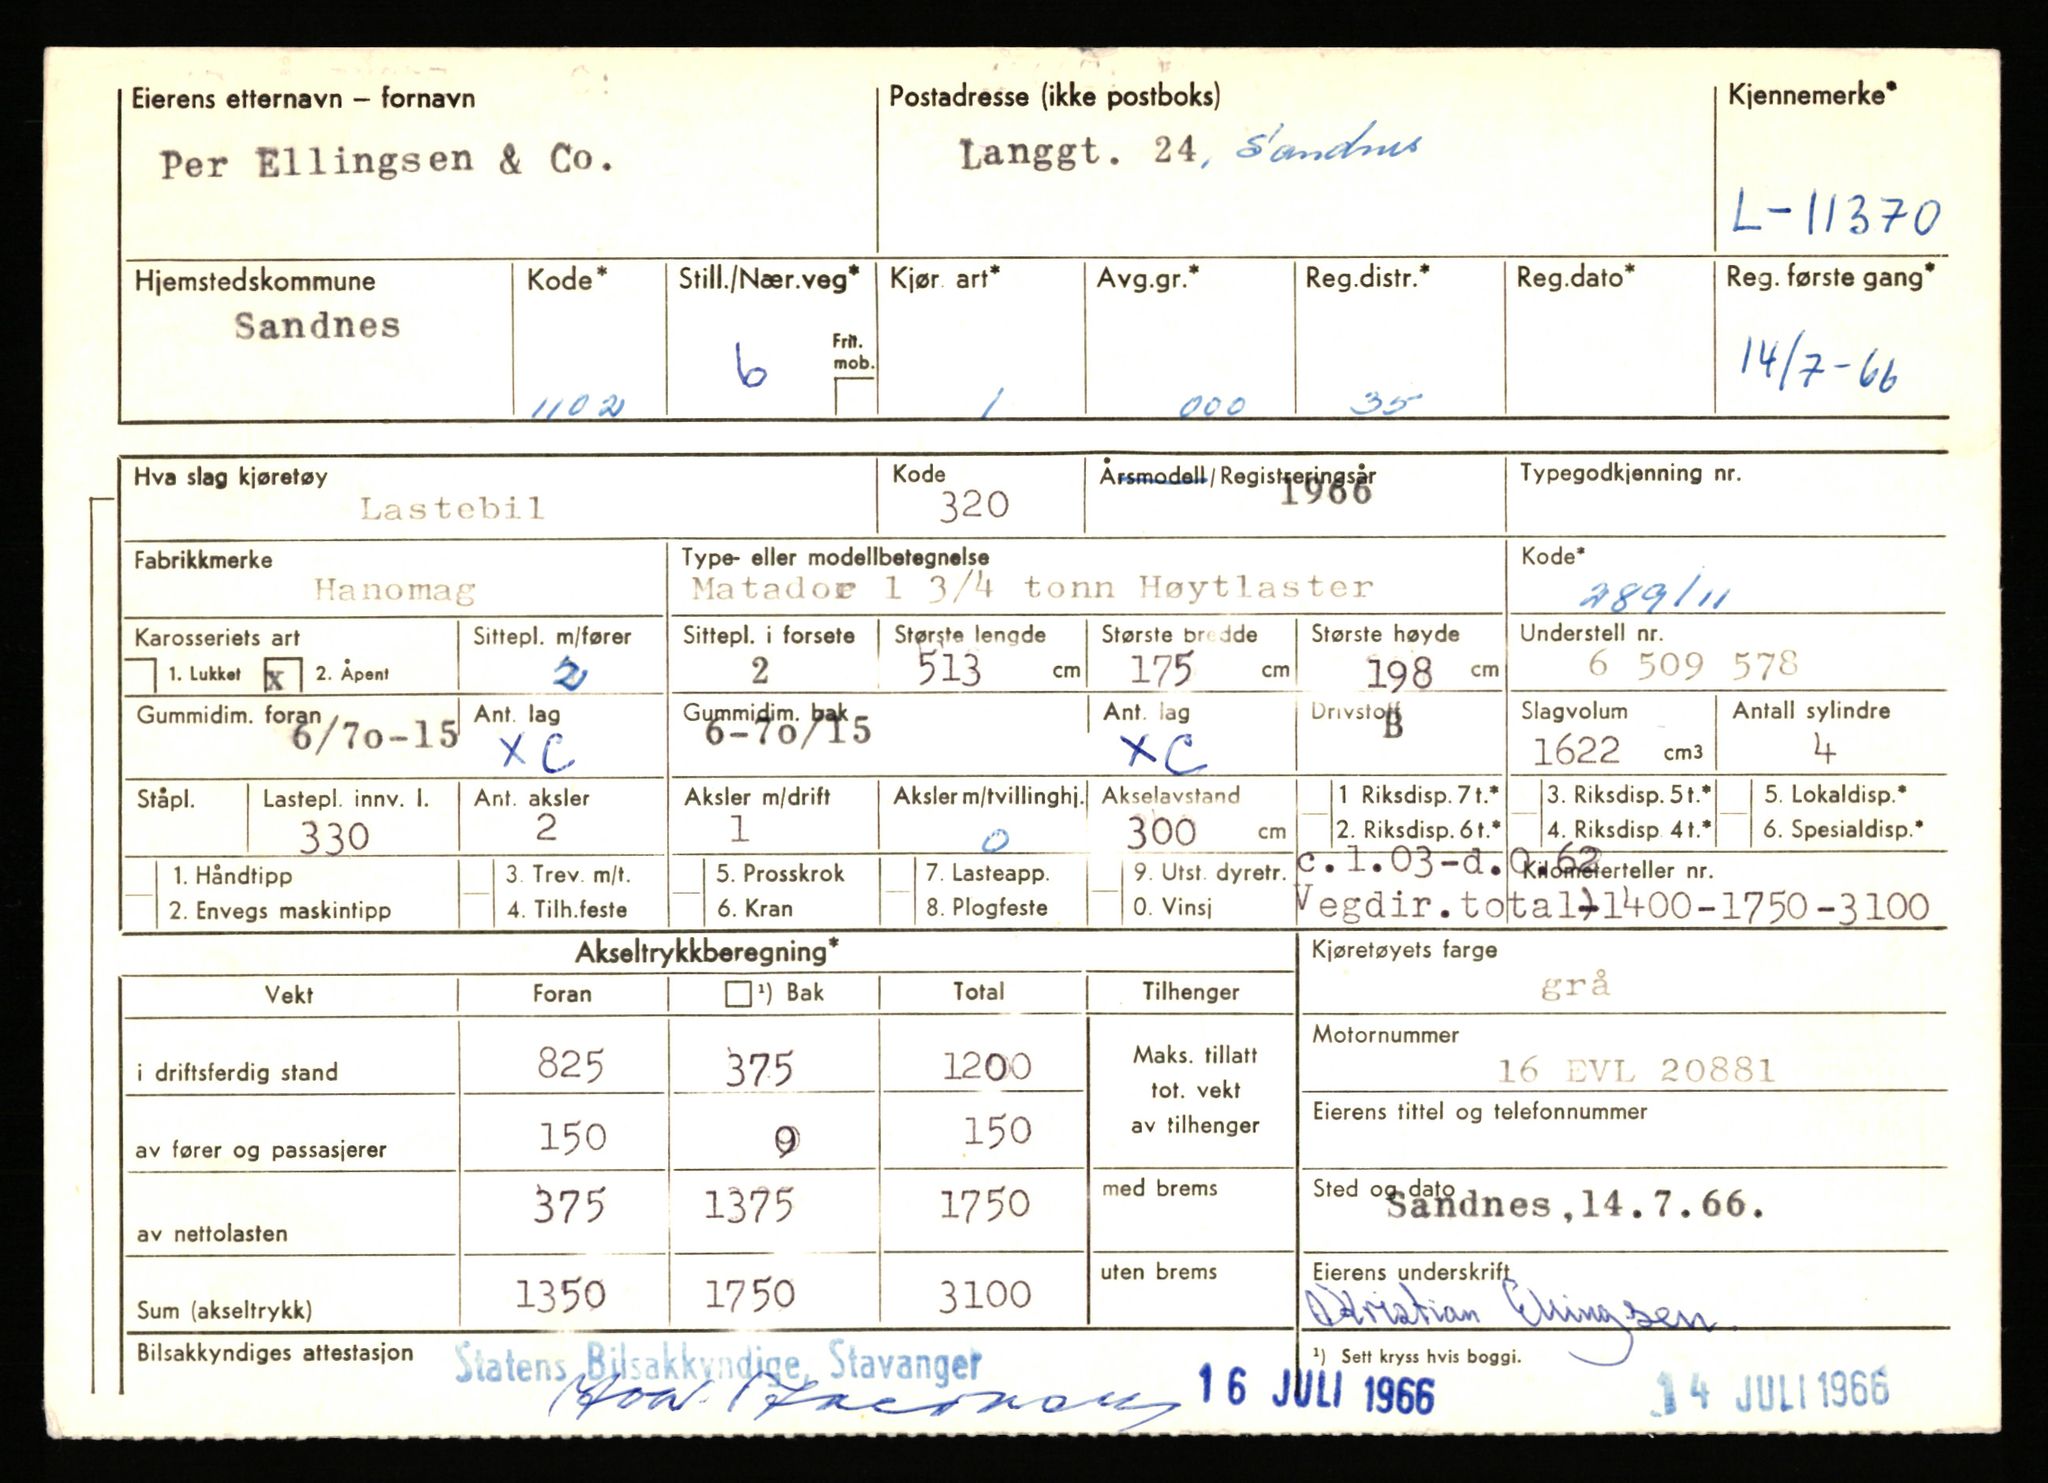 Eierens etternavn – fornavn
Per Ellingsen & Co.
Postadresse (ikke postboks)
Langgt. 24, Sandnes
Kjennemerke*
L-11370
Hjemstedskommune
Sandnes
Kode*
1102
Still./Nær.veg*
6
Frit. mob.
Kjør. art*
1
Avg.gr.*
000
Reg.distr.*
35
Reg.dato*
Reg. første gang*
14/7-66
Hva slag kjøretøy
Lastebil
Kode
320
Årsmodell/Registreringsår
1966
Typegodkjenning nr.
Fabrikkmerke
Hanomag
Type- eller modellbetegnelse
Matador 1 3/4 tonn Høytlaster
Kode*
289/11
Karosseriets art
1. Lukket x 2. Åpent
Sittepl. m/fører
2
Sittepl. i forsete
2
Største lengde
513 cm
Største bredde
175 cm
Største høyde
198 cm
Understell nr.
6 509 578
Gummidim. foran
6/70-15
Ant. lag
XC
Gummidim. bak
6-70/15
Ant. lag
XC
Drivstoff
B
Slagvolum
1622 cm3
Antall sylindre
4
Ståpl.
Lastepl. innv. l.
330
Ant. aksler
2
Aksler m/drift
1
Aksler m/tvillinghj.
0
Akselavstand
300 cm
1 Riksdisp. 7 t.*
2. Riksdisp. 6 t.*
3. Riksdisp. 5 t.*
4. Riksdisp. 4 t.*
5. Lokaldisp.*
6. Spesialdisp.*
1. Håndtipp
2. Envegs maskintipp
3. Trev. m/t.
4. Tilh.feste
5. Prosskrok
6. Kran
7. Lasteapp.
8. Plogfeste
9. Utst. dyretr.
0. Vinsj
c.1.03-d.0.62
Kilometerteller nr.
Vegdir.total-1400-1750-3100
Akseltrykkberegning*
Vekt Foran ¹) Bak Total Tilhenger
i driftsferdig stand 825 375 1200
Maks. tillatt
tot. vekt
av tilhenger
av fører og passasjerer 150 0 150
av nettolasten 375 1375 1750 med brems
Sum (akseltrykk) 1350 1750 3100 uten brems
Kjøretøyets farge
grå
Motornummer
16 EVL 20881
Eierens tittel og telefonnummer
Sted og dato
Sandnes, 14.7.66.
Eierens underskrift
Kristian Ellingsen
¹) Sett kryss hvis boggi.
Bilsakkyndiges attestasjon
Statens Bilsakkyndige, Stavanger
16 JULI 1966
14 JULI 1966